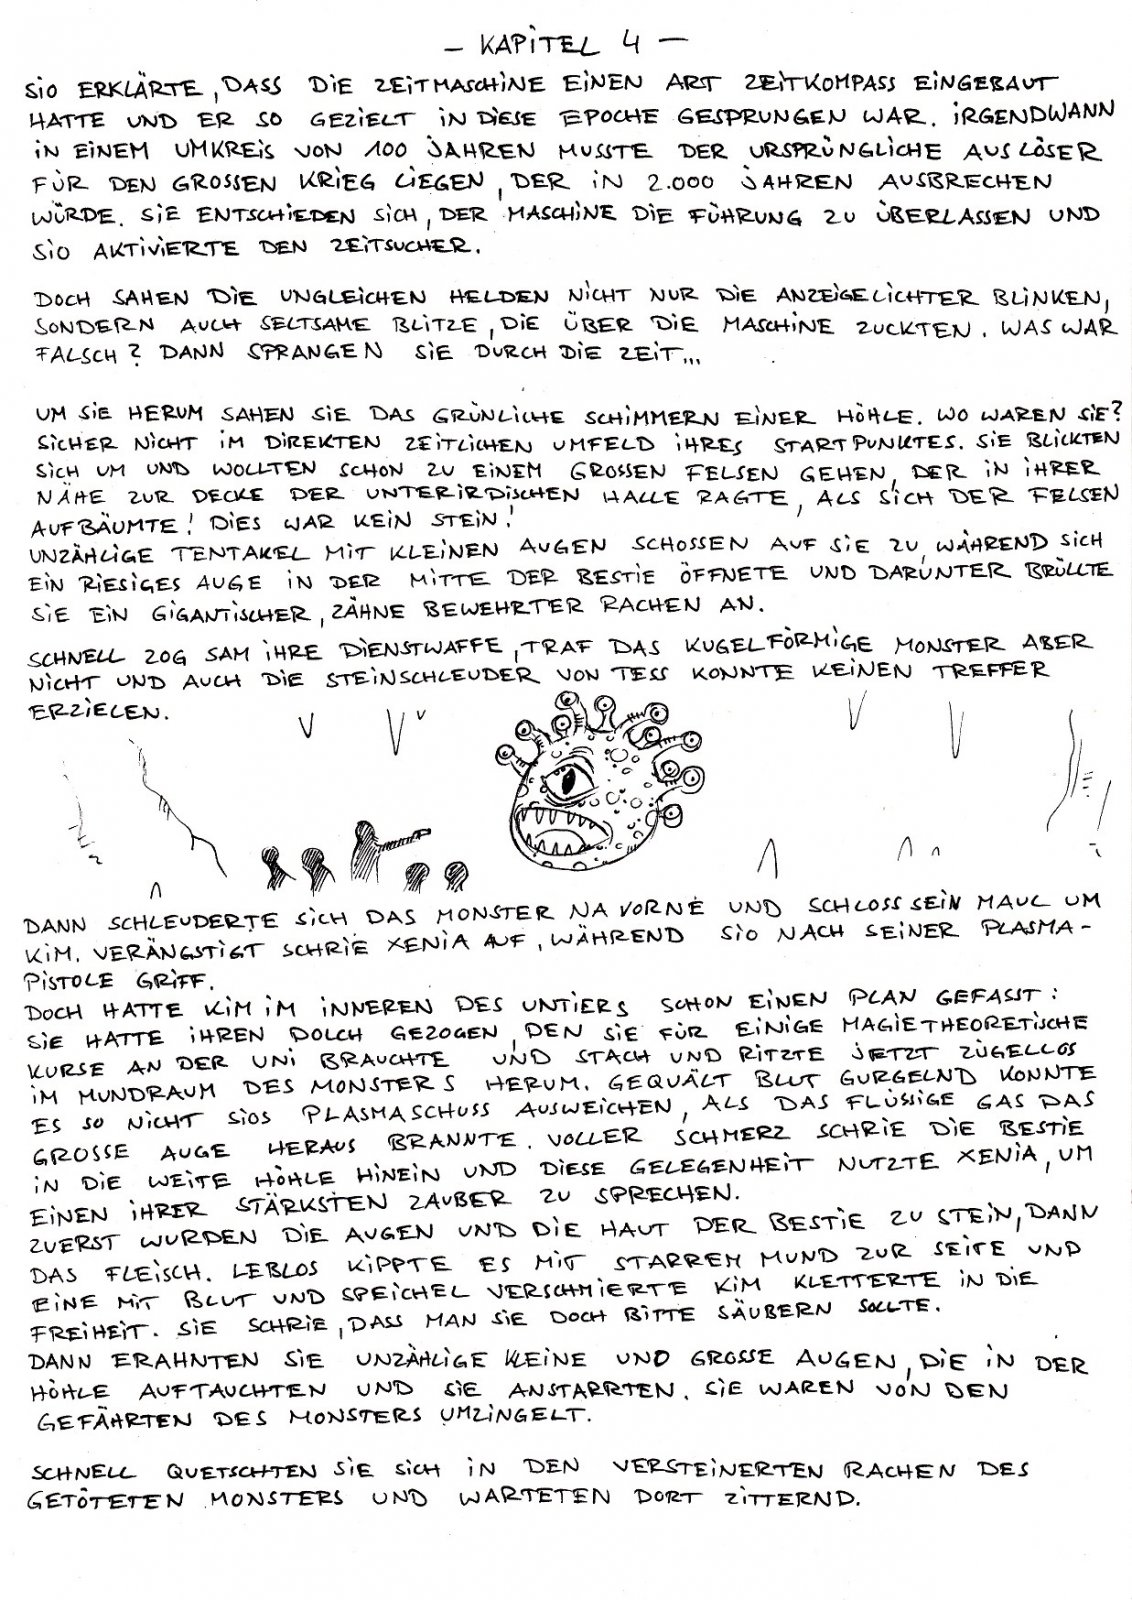 – KAPITEL 4 –
SIO ERKLÄRTE, DASS DIE ZEITMASCHINE EINEN ART ZEITKOMPASS EINGEBAUT
HATTE UND ER SO GEZIELT IN DIESE EPOCHE GESPRUNGEN WAR. IRGENDWANN
IN EINEM UMKREIS VON 100 JAHREN MUSSTE DER URSPRÜNGLICHE AUSLÖSER
FÜR DEN GROSSEN KRIEG LIEGEN, DER IN 2.000 JAHREN AUSBRECHEN
WÜRDE. SIE ENTSCHIEDEN SICH, DER MASCHINE DIE FÜHRUNG ZU ÜBERLASSEN UND
SIO AKTIVIERTE DEN ZEITSUCHER.
DOCH SAHEN DIE UNGLEICHEN HELDEN NICHT NUR DIE ANZEIGELICHTER BLINKEN,
SONDERN AUCH SELTSAME BLITZE, DIE ÜBER DIE MASCHINE ZUCKTEN. WAS WAR
FALSCH? DANN SPRANGEN SIE DURCH DIE ZEIT...
UM SIE HERUM SAHEN SIE DAS GRÜNLICHE SCHIMMERN EINER HÖHLE. WO WAREN SIE?
SICHER NICHT IM DIREKTEN ZEITLICHEN UMFELD IHRES STARTPUNKTES. SIE BLICKTEN
SICH UM UND WOLLTEN SCHON ZU EINEM GROSSEN FELSEN GEHEN, DER IN IHRER
NÄHE ZUR DECKE DER UNTERIRDISCHEN HALLE RAGTE, ALS SICH DER FELSEN
AUFBÄUMTE! DIES WAR KEIN STEIN!
UNZÄHLIGE TENTAKEL MIT KLEINEN AUGEN SCHOSSEN AUF SIE ZU, WÄHREND SICH
EIN RIESIGES AUGE IN DER MITTE DER BESTIE ÖFFNETE UND DARUNTER BRÜLLTE
SIE EIN GIGANTISCHER, ZÄHNE BEWEHRTER RACHEN AN.
SCHNELL ZOG SAM IHRE DIENSTWAFFE, TRAF DAS KUGELFÖRMIGE MONSTER ABER
NICHT UND AUCH DIE STEINSCHLEUDER VON TESS KONNTE KEINEN TREFFER
ERZIELEN.
DANN SCHLEUDERTE SICH DAS MONSTER NA VORNE UND SCHLOSS SEIN MAUL UM
KIM. VERÄNGSTIGT SCHRIE XENIA AUF, WÄHREND SIO NACH SEINER PLASMA-
PISTOLE GRIFF.
DOCH HATTE KIM IM INNEREN DES UNTIERS SCHON EINEN PLAN GEFASST:
SIE HATTE IHREN DOLCH GEZOGEN, DEN SIE FÜR EINIGE MAGIETHEORETISCHE
KURSE AN DER UNI BRAUCHTE UND STACH UND RITZTE JETZT ZÜGELLOS
IM MUNDRAUM DES MONSTERS HERUM. GEQUÄLT BLUT GURGELND KONNTE
ES SO NICHT SIOS PLASMASCHUSS AUSWEICHEN, ALS DAS FLÜSSIGE GAS DAS
GROSSE AUGE HERAUS BRANNTE. VOLLER SCHMERZ SCHRIE DIE BESTIE
IN DIE WEITE HÖHLE HINEIN UND DIESE GELEGENHEIT NUTZTE XENIA, UM
EINEN IHRER STÄRKSTEN ZAUBER ZU SPRECHEN.
ZUERST WURDEN DIE AUGEN UND DIE HAUT DER BESTIE ZU STEIN, DANN
DAS FLEISCH. LEBLOS KIPPTE ES MIT STARREM MUND ZUR SEITE UND
EINE MIT BLUT UND SPEICHEL VERSCHMIERTE KIM KLETTERTE IN DIE
FREIHEIT. SIE SCHRIE, DASS MAN SIE DOCH BITTE SÄUBERN SOLLTE.
DANN ERAHNTEN SIE UNZÄHLIGE KLEINE UND GROSSE AUGEN, DIE IN DER
HÖHLE AUFTAUCHTEN UND SIE ANSTARRTEN. SIE WAREN VON DEN
GEFÄHRTEN DES MONSTERS UMZINGELT.
SCHNELL QUETSCHTEN SIE SICH IN DEN VERSTEINERTEN RACHEN DES
GETÖTETEN MONSTERS UND WARTETEN DORT ZITTERND.